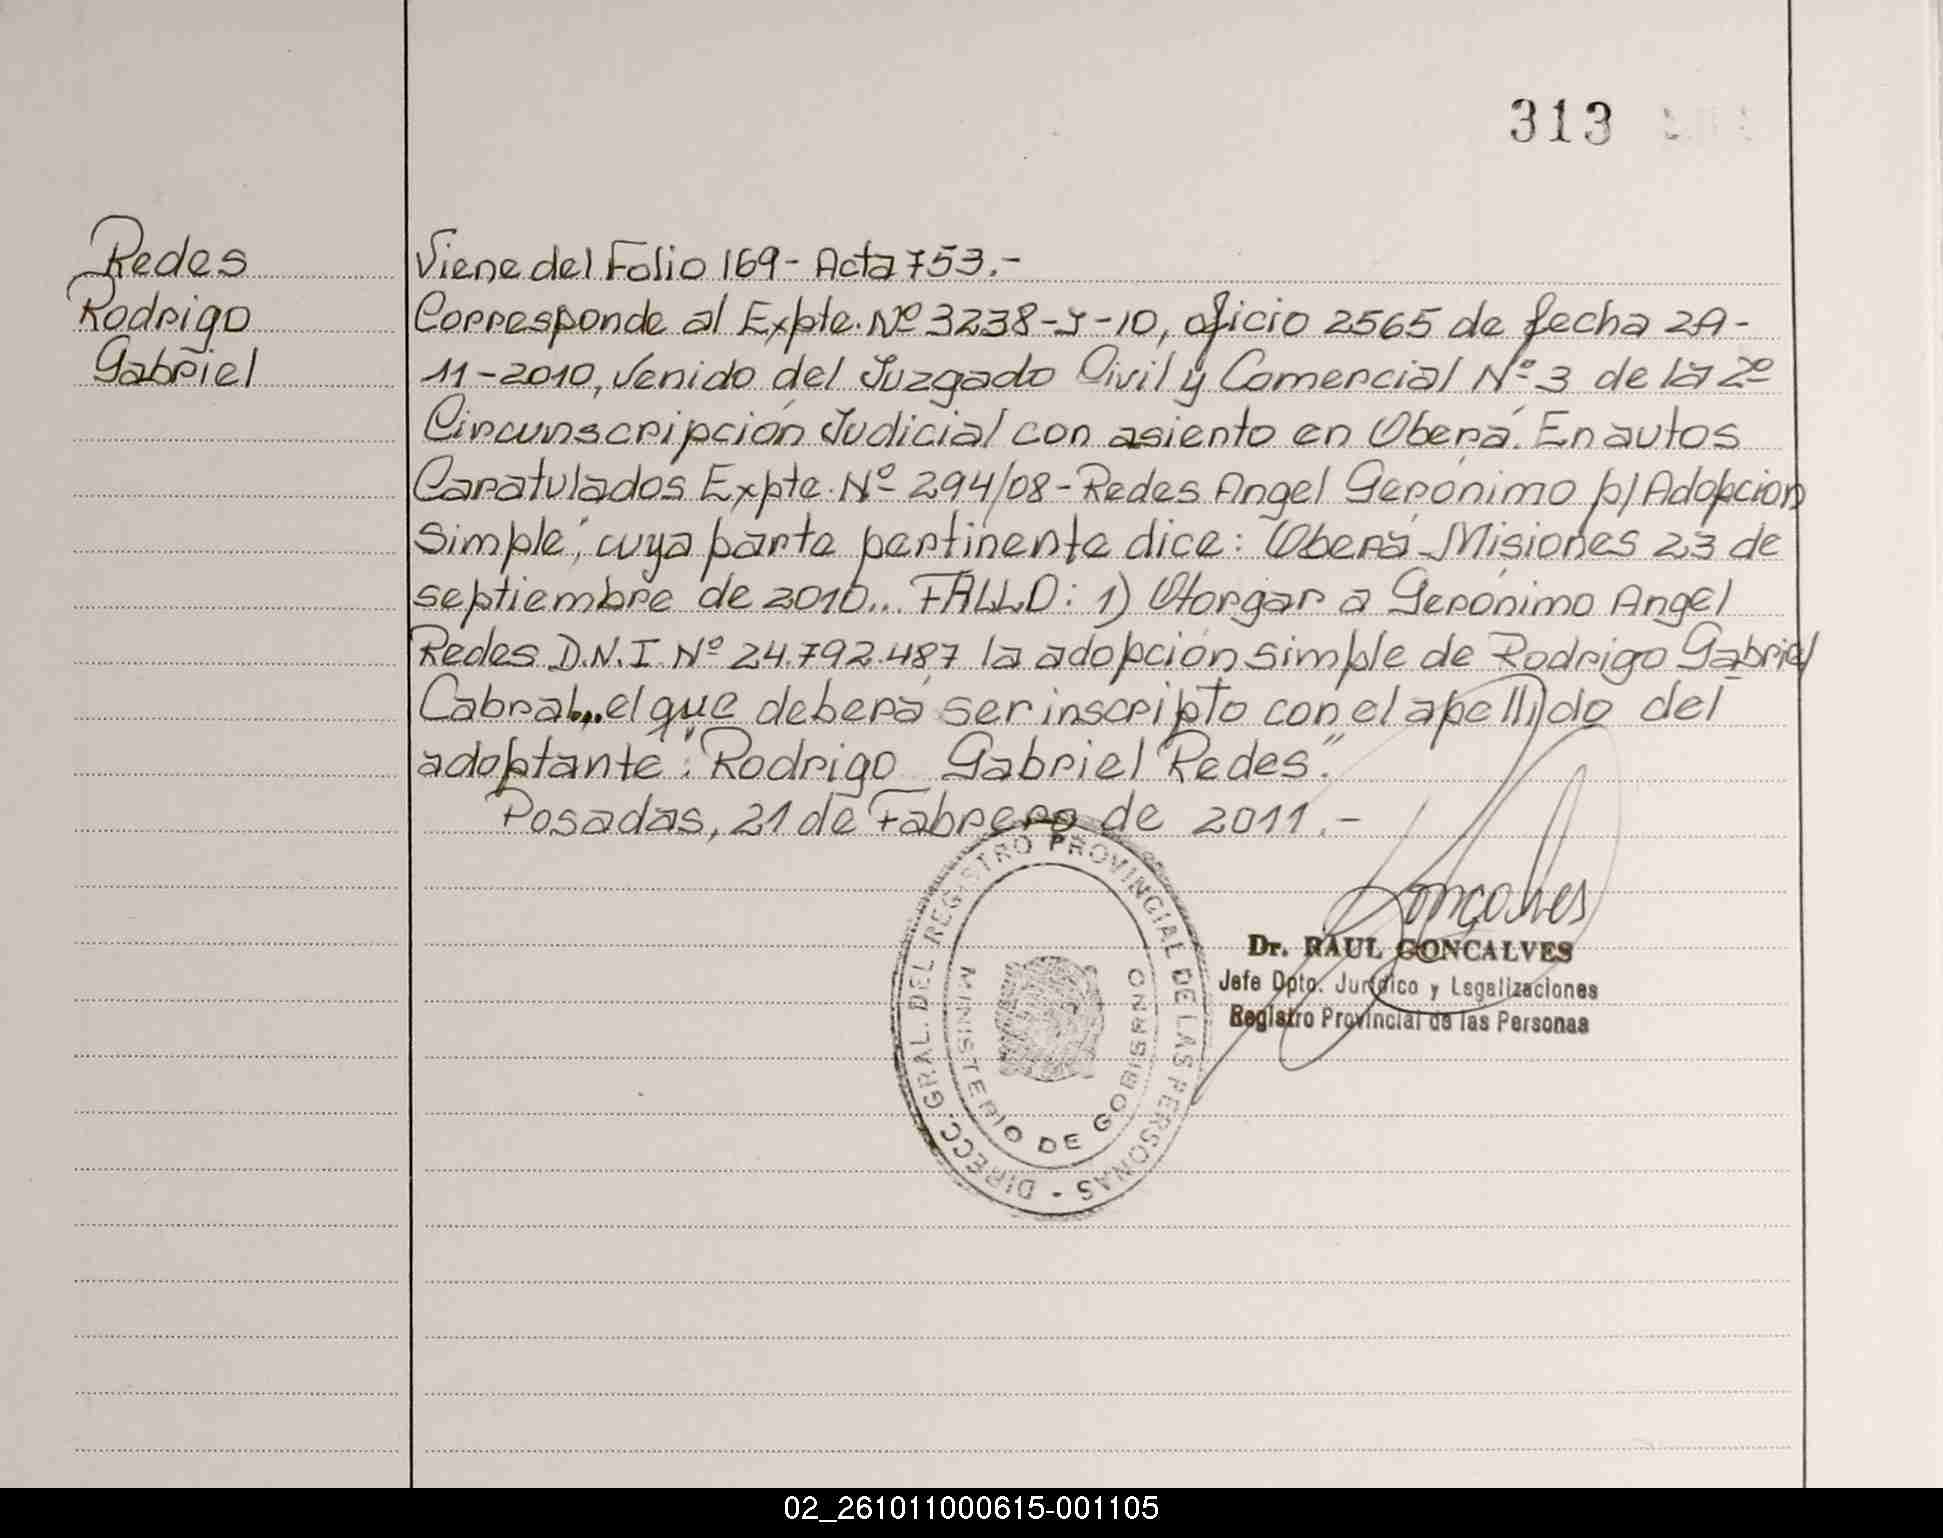 313
Redes
Rodrigo
Gabriel
Viene del Folio 169- Acta 753.-
Corresponde al Expte. Nº 3238-J-10, oficio 2565 de fecha 29-
11-2010, venido del Juzgado Civil y Comercial Nº 3 de la 2º
Circunscripción Judicial con asiento en Oberá. En autos
Caratulados Expte. Nº 294/08-Redes Angel Gerónimo p/Adopción
Simple", cuya parte pertinente dice: "Oberá Misiones 23 de
septiembre de 2010... FALLO: 1) Otorgar a Gerónimo Angel
Redes D.N.I Nº 24.792.487 la adopción simple de Rodrigo Gabriel
Cabral... el que deberá ser inscripto con el apellido del
adoptante: "Rodrigo Gabriel Redes."
Posadas, 21 de Febrero de 2011.-
DIRECC. GRAL. DEL REGISTRO PROVINCIAL DE LAS PERSONAS -
MINISTERIO DE GOBIERNO
Gonçalves
Dr. RAUL GONCALVES
Jefe Dpto. Jurídico y Legalizaciones
Registro Provincial de las Personas
02_261011000615-001105